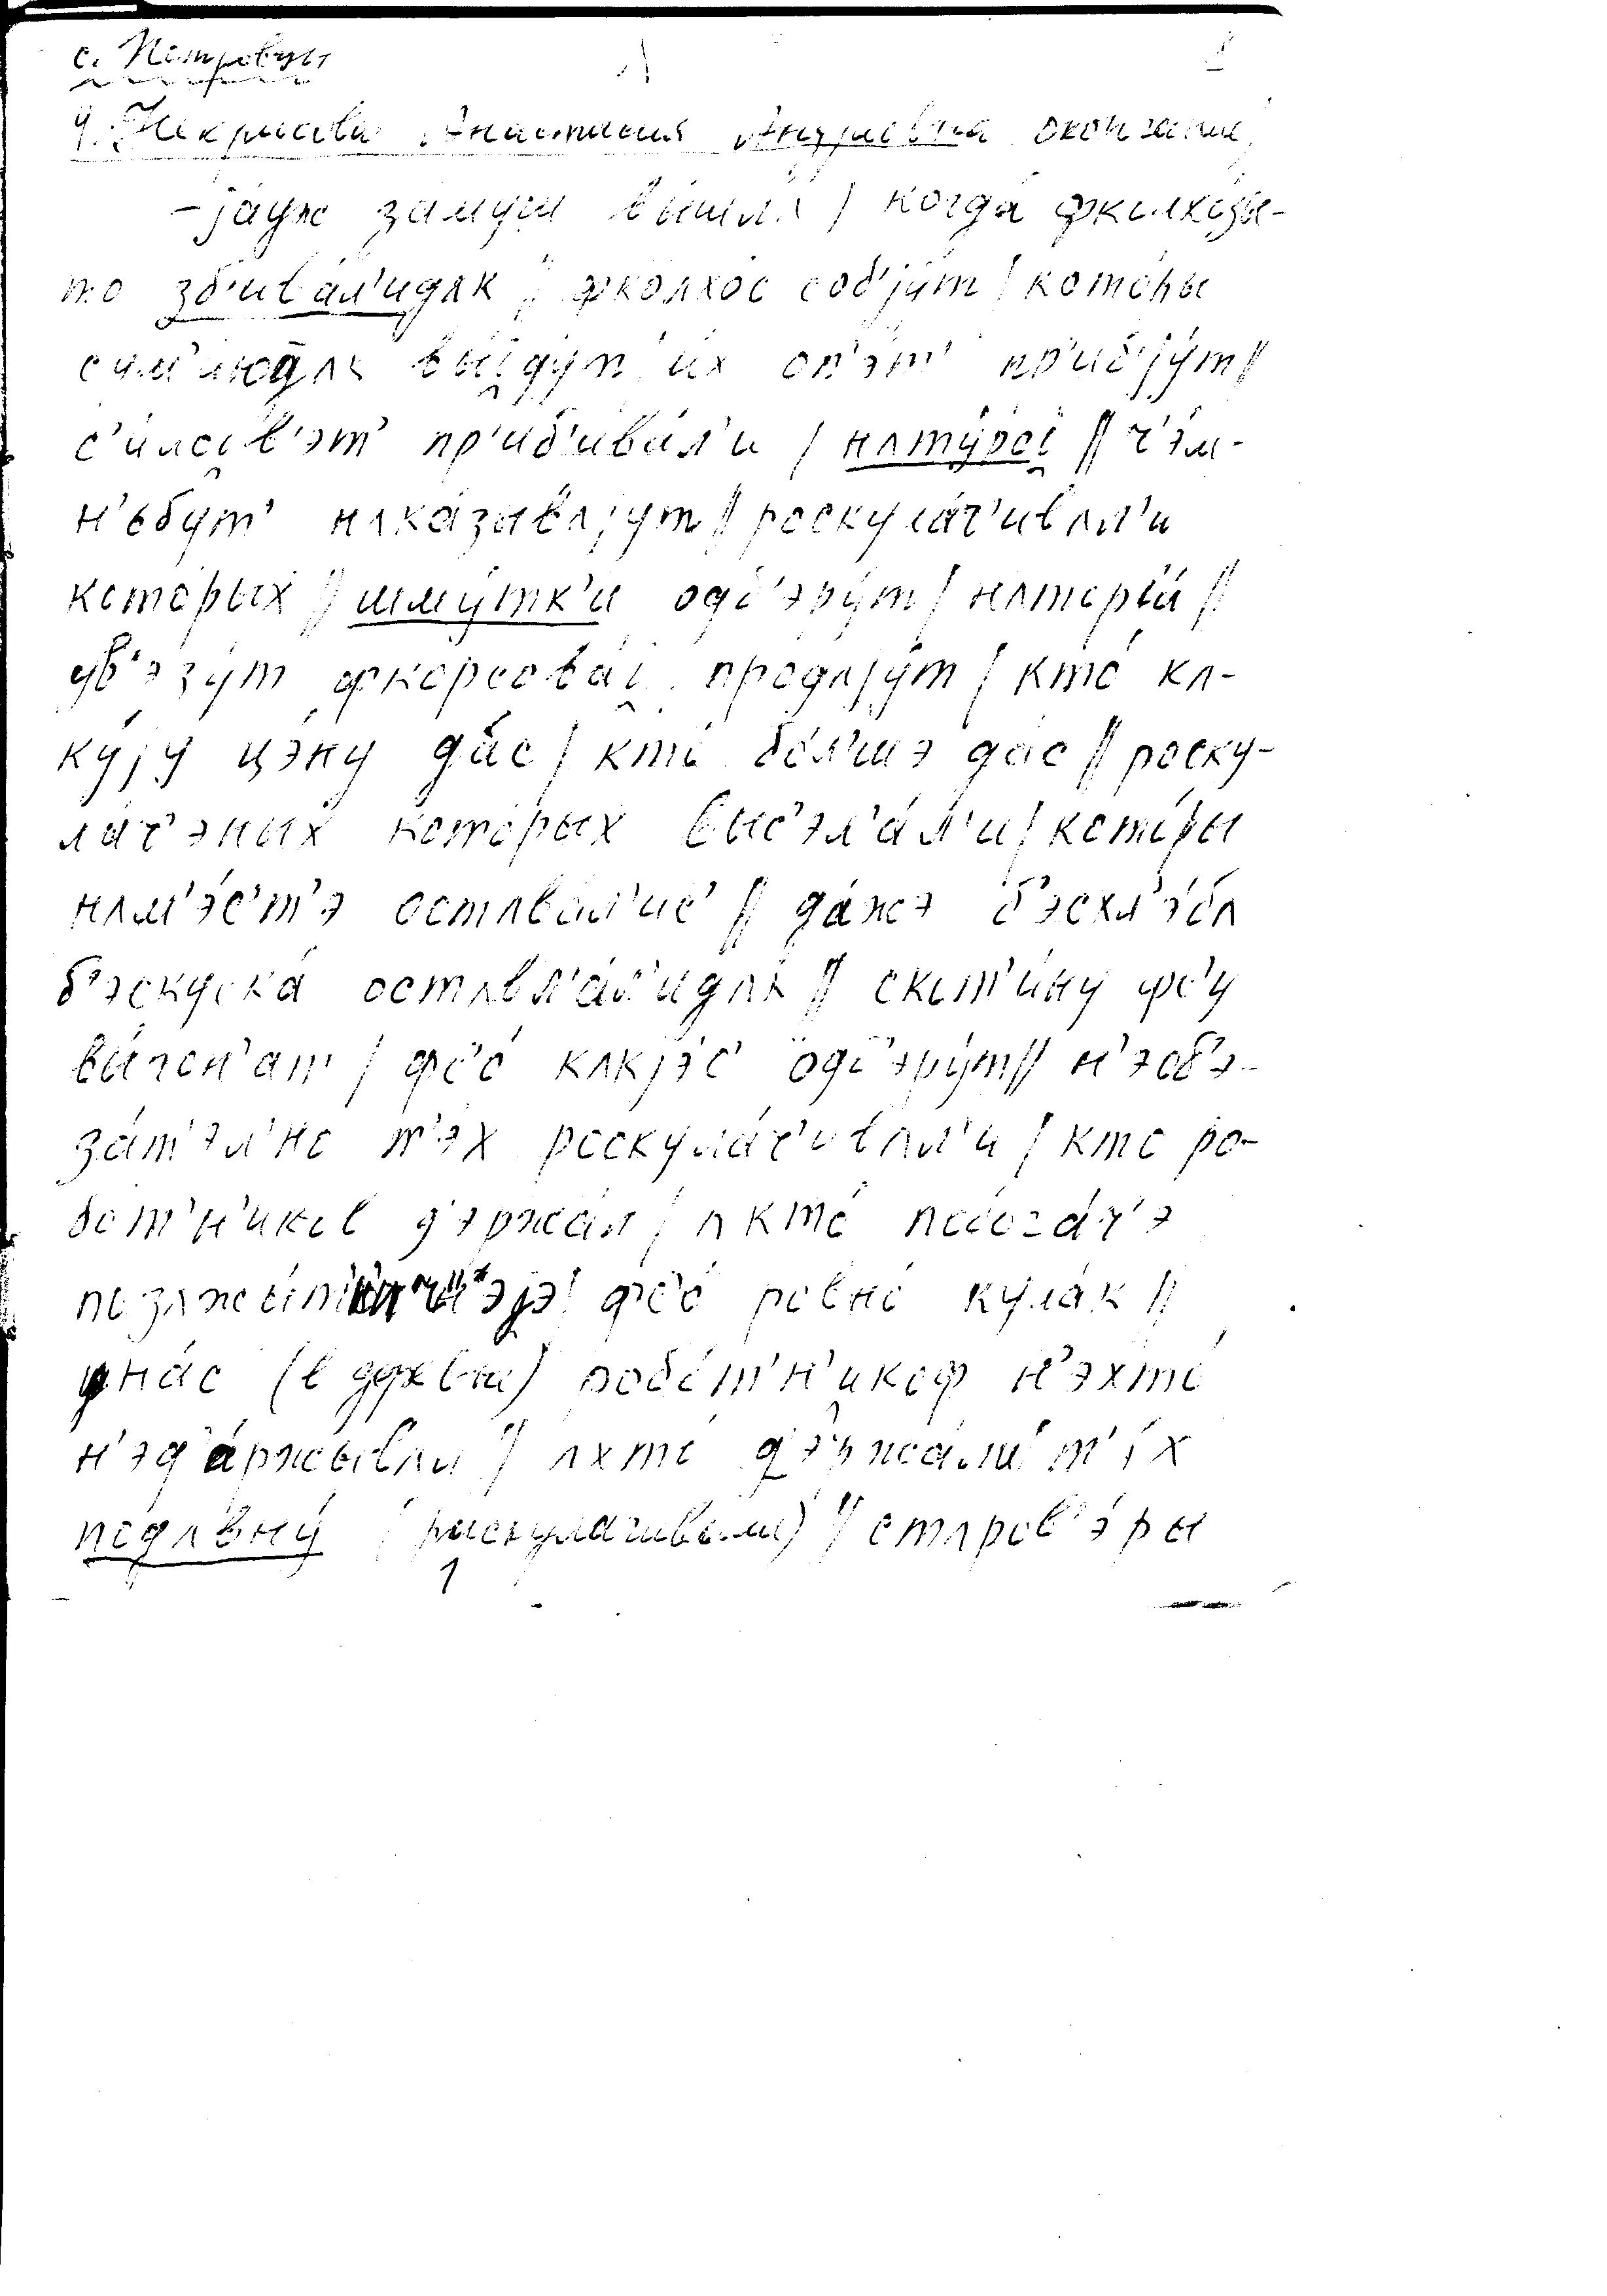 с. Петровцы 1
4. Некрасова Анастасия Андреевна окончание
– jа́уж за́муш вы́шлʌ / когда́ фколхо́зы-
то зб'ива́л'идʌк // фколхо́с соб'jу́т / кото́ры
сум'ию́дʌк вы́i̯дут их оп'э́т' пр'иб'jу́т //
с'илсов'э́т пр'иб'ива́л'и / нʌту́роi̯ // ч'э́м-
н'ебут' нʌка́зывʌjут // роскула́ч'ивʌл'и
кото́рых // шму́тк'и одб'эру́т / нʌторги́ //
ув'эзу́т фкорсова́i̯ продʌjу́т / кто́ кʌ-
ку́jу цэ́ну да́с / кто́ бо́л'шэ да́с // роску-
ла́ч'эных кото́рых выс'эл'а́л'и / кото́ры
нʌм'э́с'т'э остʌва́л'ис' // да́жэ б'эсхл'э́бʌ
б'эскуска́ остʌвл'а́л'идʌк // скот'и́ну фс'у
вы́гон'ат / фс'о́ кʌкjэс' одб'эру́т // н'эоб'э-
за́т'эл'но т'эх роскула́ч'ивʌл'и / кто ро-
бот'н'иков д'эржа́л / ʌкто́ побога́ч'э
позʌжы́точн'эjэ фс'о́ ровно́ кула́к //
уна́с робо́т'н'икоф н'эхто́
н'эд'а́ржывʌл // ʌхто́ д'эржа́ли т'іх
подʌвну́ (раскулачивали) // стʌров'э́ры
1